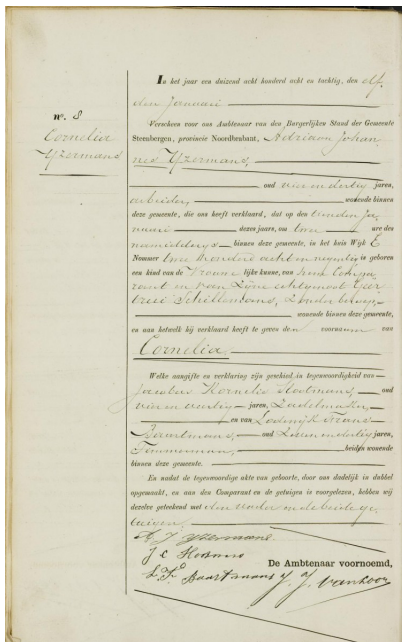 In het jaar een duizend acht honderd acht en tachtig, den elf
den Januari
nº. 8
Cornelia
IJzermans
Verscheen voor ons Ambtenaar van den Burgerlijken Stand der Gemeente
Steenbergen, provincie Noordbrabant, Adriaan Johan
nes IJzermans,
oud vier en dertig jaren,
arbeider, wonende binnen
deze gemeente, die ons heeft verklaard, dat op den tienden Ja
nuari dezes jaars, om twee ure des
namiddags binnen deze gemeente, in het huis Wijk E
Nommer twee honderd acht en negentig is geboren
een kind van de Vrouwelijke kunne, van hem Compa
rant en van zijne echtgenoot Geer
trui Schillemans, zonder beroep,
wonende binnen deze gemeente,
en aan hetwelk hij verklaard heeft te geven den voornaam van
Cornelia.
Welke aangifte en verklaring zijn geschied in tegenwoordigheid van
Jacobus Kornelis Slootmans, oud
vier en veertig jaren, Zadelmaker,
en van Lodewijk Frans
Baartmans, oud zes en dertig jaren,
Timmerman, beiden wonende
binnen deze gemeente.
En nadat de tegenwoordige akte van geboorte, door ons dadelijk in dubbel
opgemaakt, en aan den Comparant en de getuigen is voorgelezen, hebben wij
dezelve geteekend met den vader en de beide ge
tuigen.
A J IJzermans.
J C Slootmans
De Ambtenaar voornoemd,
L. F. Baartmans J. J. van Loon